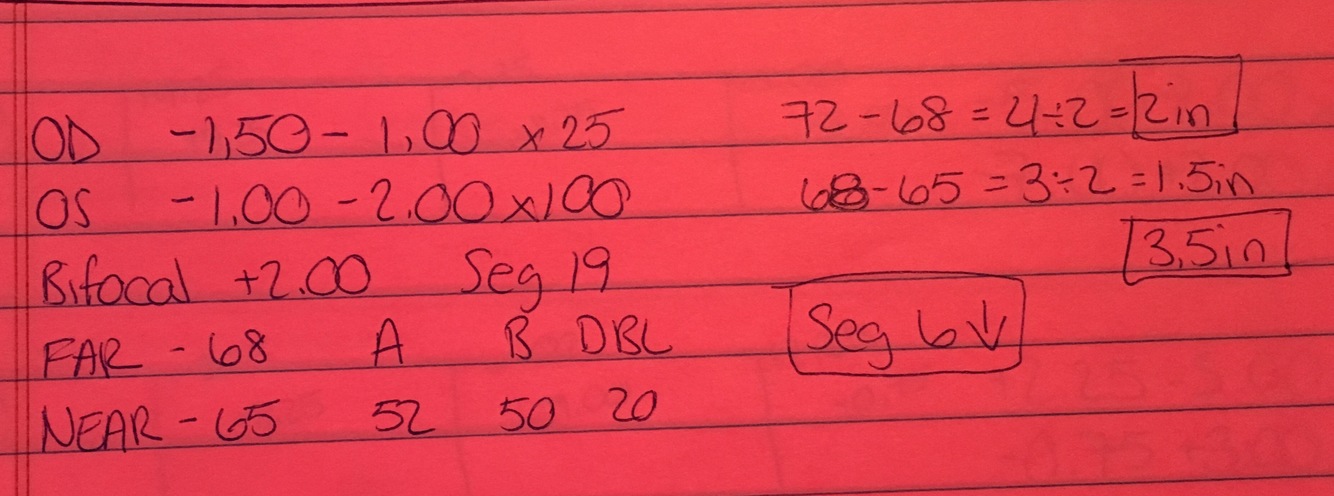 OD -1,50 - 1.00 x 25 72 - 68 = 4 ÷ 2 = 2in
OS -1.00 - 2.00 x 100 68 - 65 = 3 ÷ 2 = 1.5in
Bifocal +2.00 Seg 19 3.5in
FAR - 68 A B DBL Seg 6↓
NEAR - 65 52 50 20